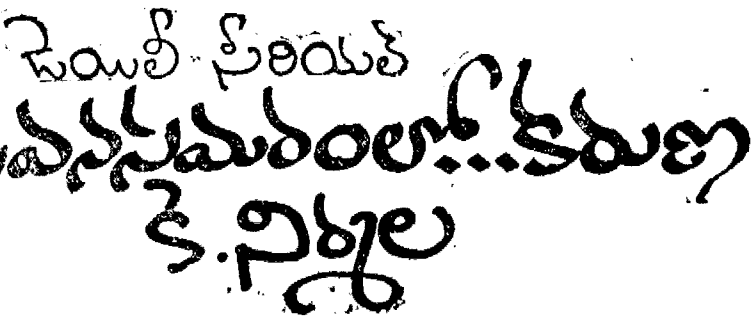 డెయిలీ సీరియల్
వనసమరంలో...కరుణ
కె.నిర్మల